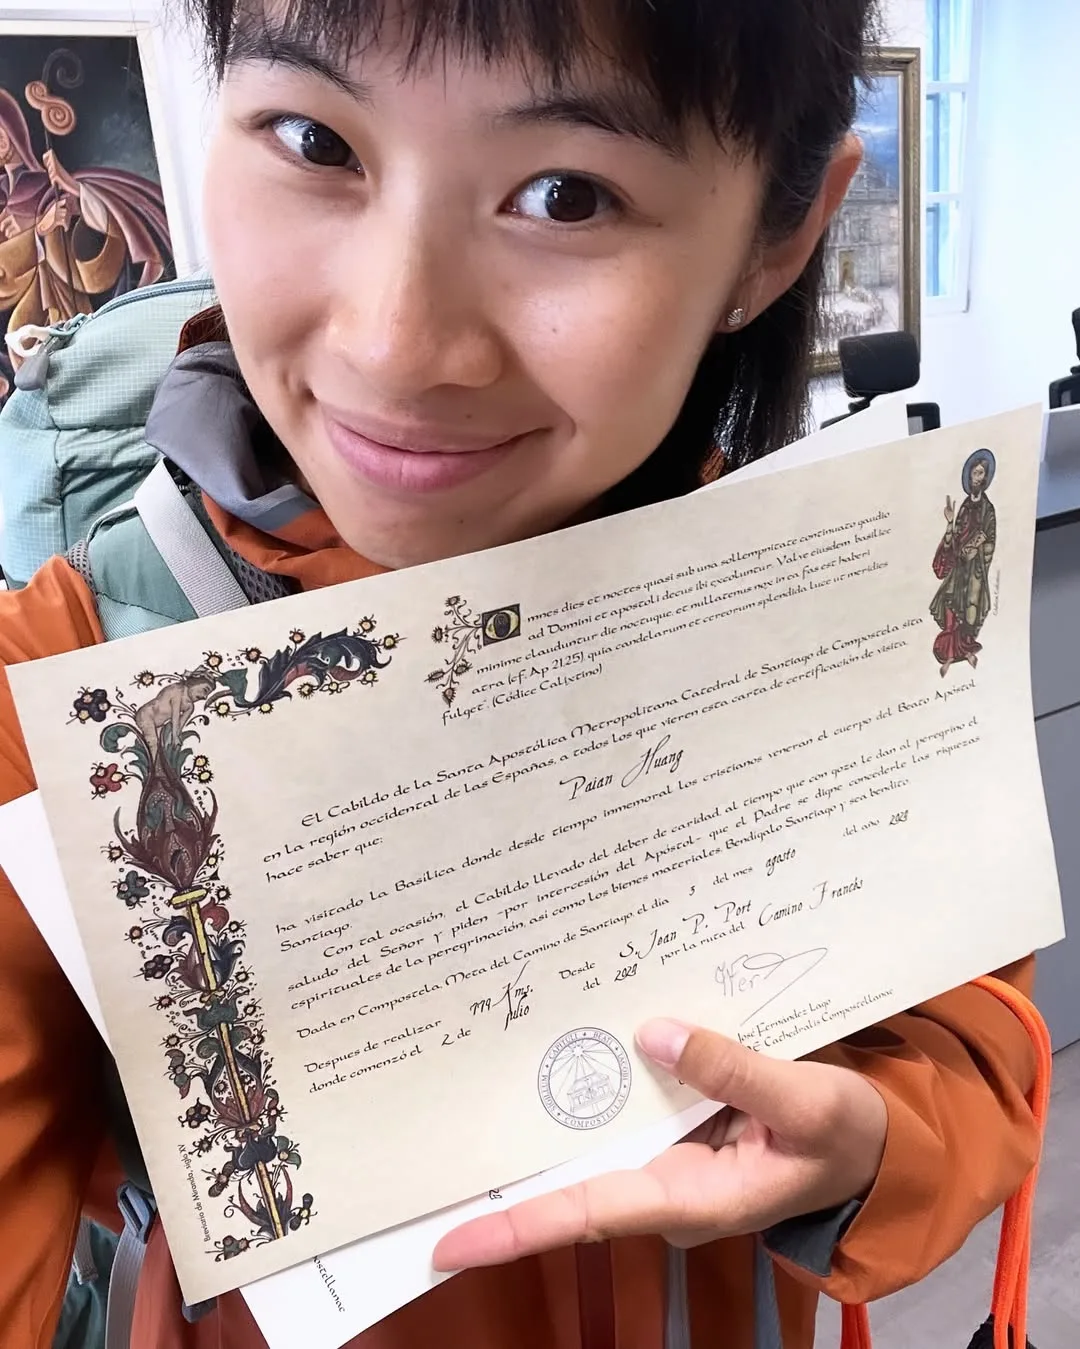 Omnes dies et noctes quasi sub una sollempnitate continuato gaudio
ad Domini et apostoli decus ibi excoluntur. Valve eiusdem basilice
minime clauduntur die noctuque, et nullatenus nox in ea fas est haberi
atra (cf. Ap 21,25), quia candelarum et cereorum splendida luce ut meridies
fulget". (Códice Calixtino)
El Cabildo de la Santa Apostólica Metropolitana Catedral de Santiago de Compostela sita
en la región occidental de las Españas, a todos los que vieren esta carta de certificación de visita,
hace saber que:
Paian Huang
ha visitado la Basílica donde desde tiempo inmemorial los cristianos veneran el cuerpo del Beato Apóstol
Santiago.
Con tal ocasión, el Cabildo llevado del deber de caridad, al tiempo que con gozo le dan al peregrino el
saludo del Señor y piden -por intercesión del Apóstol- que el Padre se digne concederle las riquezas
espirituales de la peregrinación, así como los bienes materiales. Bendígalo Santiago y sea bendito
Dada en Compostela, Meta del Camino de Santiago, el día 5 del mes agosto del año
Despues de realizar 779 Kms. Desde S. Jean P. Port
donde comenzó el 2 de julio del por la ruta del Camino Francés
José Fernández Lago
Cathedralis Compostellanae
SIGILLUM CAPITULI BEATI JACOBI COMPOSTELLAE
Breviario de Miranda, siglo XV